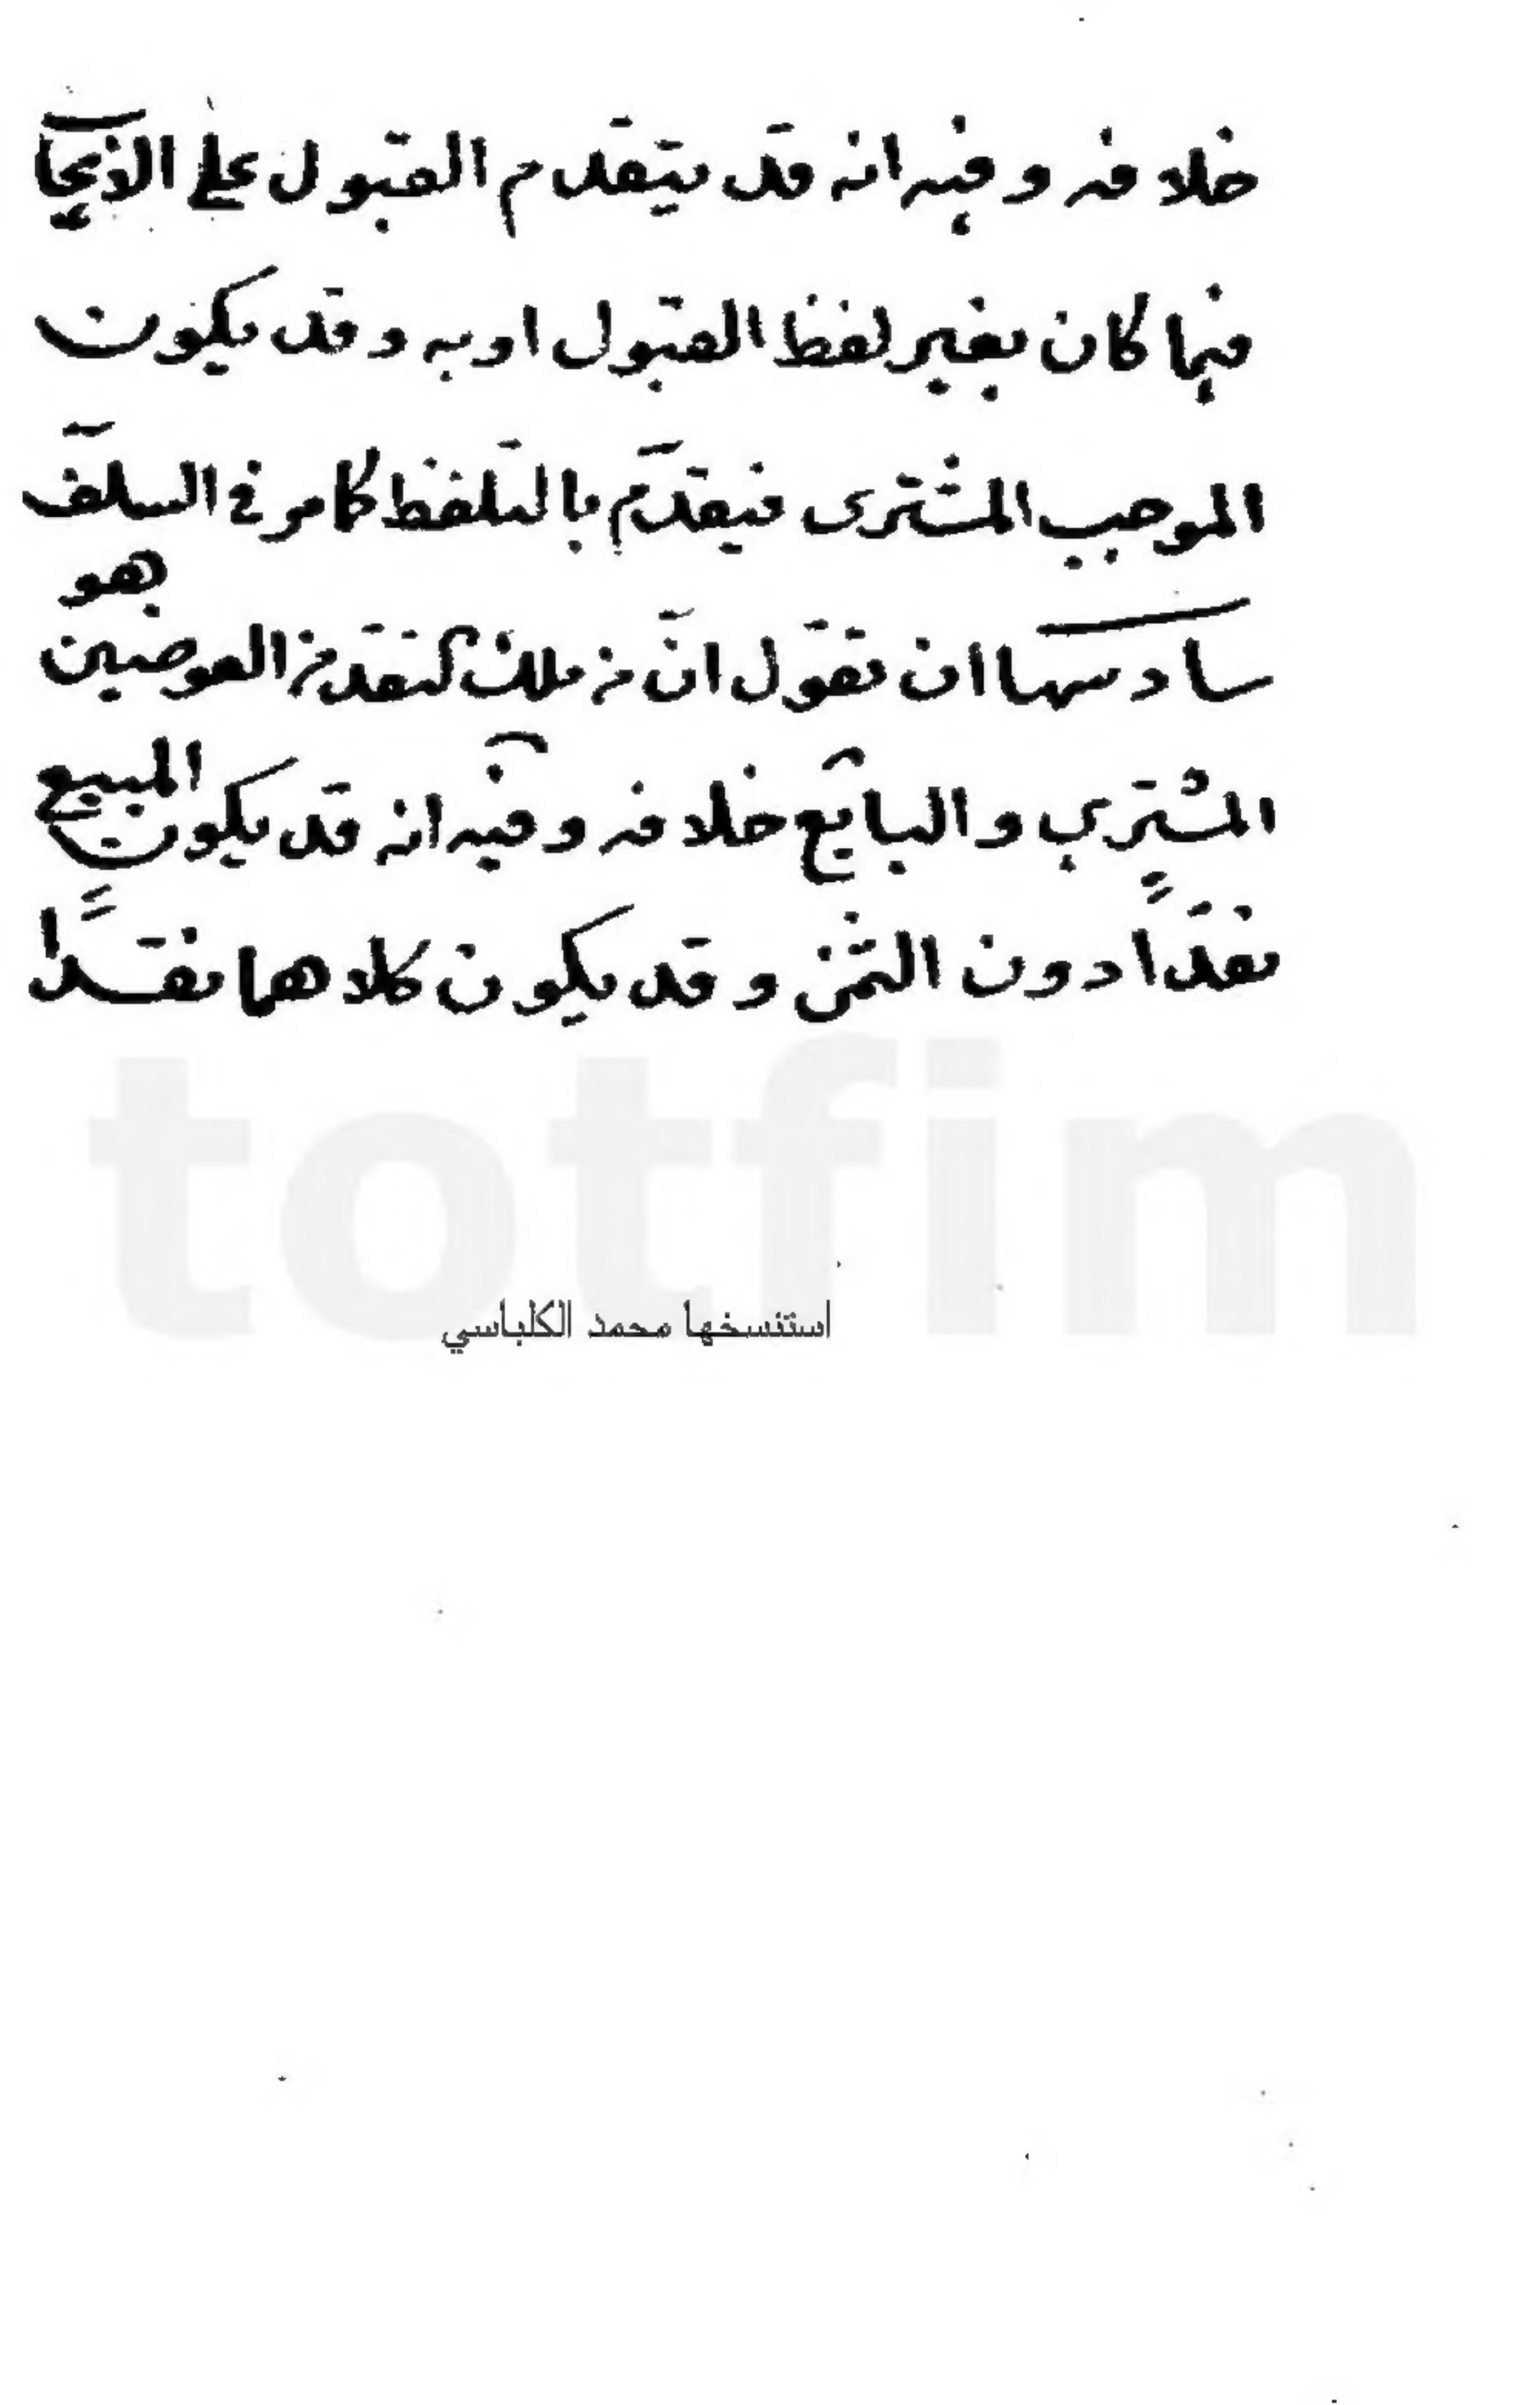 خلافه وفيه انه قد يتقدم القبول على الايجا
فيما كان بغير لفظ القبول او به و قد يكون
الموجب المشترى فيقدّم بالتلفظ كما مر في السلف
سادسها ان تقول انّ من ملك لنقد من العوضين هو
المشتري و البايع خلافه و فيه انه قد يكون المبيع
نقداً دون الثمن و قد يكون كلاهما نقداً
totfim
استنسخها محمد الكلباسي